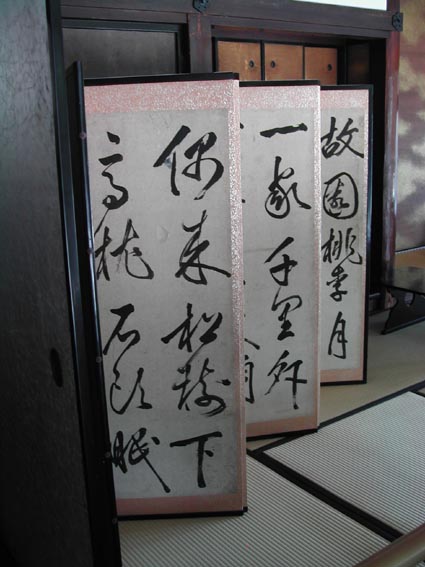 故園桃李月
一家千里外
偶来松樹下
高枕石頭眠